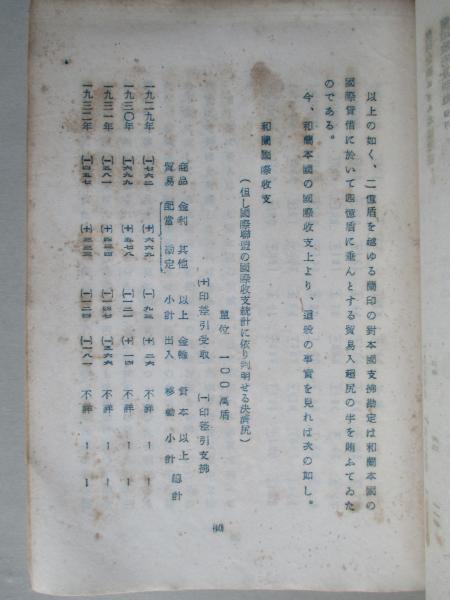 以上の如く、二億盾を越ゆる蘭印の對本國支拂勘定は和蘭本國の
國際貸借に於いて四億盾に垂んとする貿易入超尻の半を賄ふてゐた
のである。
今、和蘭本國の國際收支上より、這般の事實を見れば次の如し。
和蘭國際收支
(但し國際聯盟の國際收支統計に依り判明せる決濟尻)
單位 一〇〇萬盾
(+)印差引受取 (-)印差引支拂
商品貿易 金利配當 其他勘定 以上小計 金輸出入 資本移動 以上小計 總計
一九二九年 (-)七六二 (+)六六九 (-)九三 (+)二六 不詳 - -
一九三〇年 (-)六九九 (+)五七八 (-)一二一 (+)一四 不詳 - -
一九三一年 不詳 - -
一九三二年 (-)一八一 不詳 - -